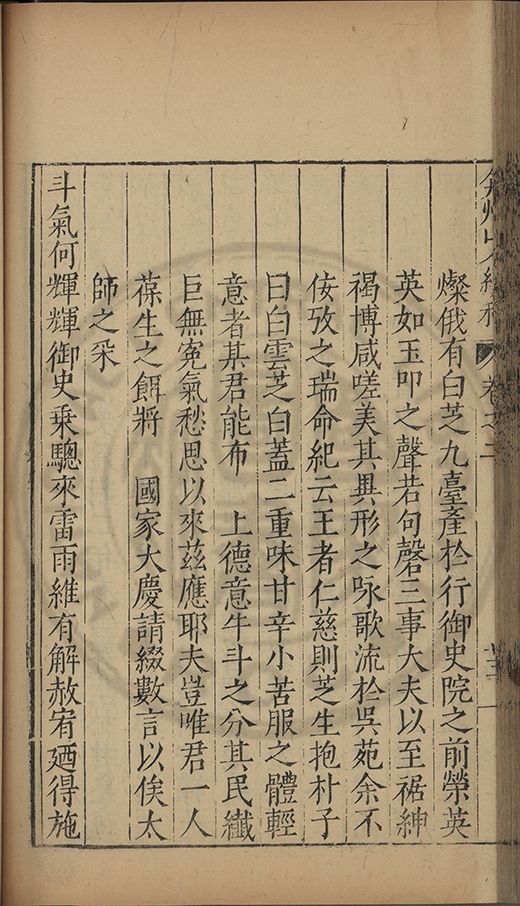 弇州山人續稿 卷之二
燦俄有白芝九臺產於行御史院之前榮英
英如玉叩之聲若句磬三事大夫以至裾紳
褐博咸嗟美其異形之咏歌流於吳苑余不
佞攷之瑞命紀云王者仁慈則芝生抱朴子
曰白雲芝白蓋二重味甘辛小苦服之體輕
意者某君能布 上德意牛斗之分其民纖
巨無冤氣愁思以來茲應耶夫豈唯君一人
葆生之餌將 國家大慶請綴數言以俟太
師之采
斗氣何輝輝御史乗驄來雷雨維有解赦宥廼得施